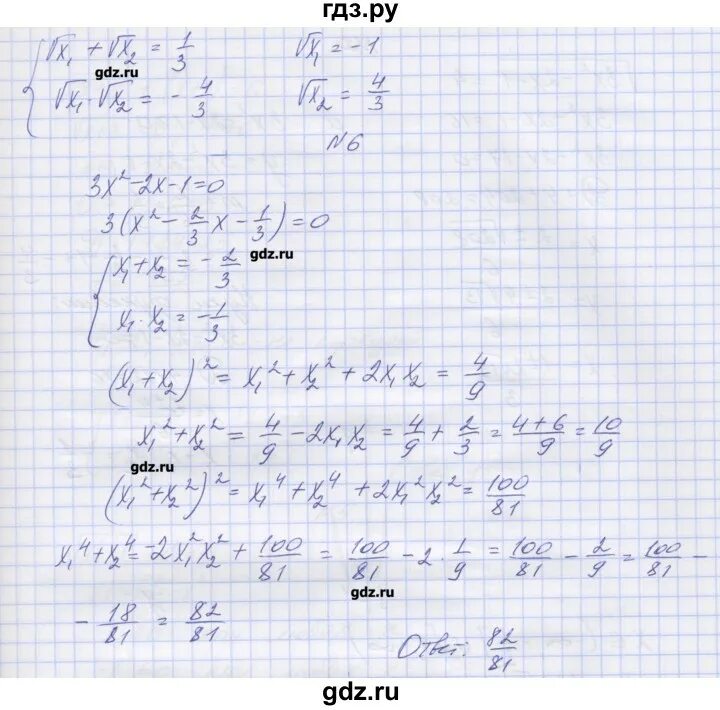 гдз.ру
√x₁ + √x₂ = 1/3 √x₁ = -1
gdz.ru
√x₁ · √x₂ = - 4/3 √x₂ = 4/3
N6
3x² - 2x - 1 = 0
3(x² - 2/3 x - 1/3) = 0
gdz.ru
x₁ + x₂ = - 2/3
x₁ · x₂ = - 1/3
(x₁ + x₂)² = x₁² + x₂² + 2x₁x₂ = 4/9
x₁² + x₂² = 4/9 - 2x₁x₂ = 4/9 + 2/3 = (4+6)/9 = 10/9
gdz.ru
(x₁² + x₂²)² = x₁⁴ + x₂⁴ + 2x₁²x₂² = 100/81
x₁⁴ + x₂⁴ = -2x₁²x₂² + 100/81 = 100/81 - 2 · 1/9 = 100/81 - 2/9 = 100/81 -
gdz.ru
- 18/81 = 82/81
Ответ: 82/81
gdz.ru